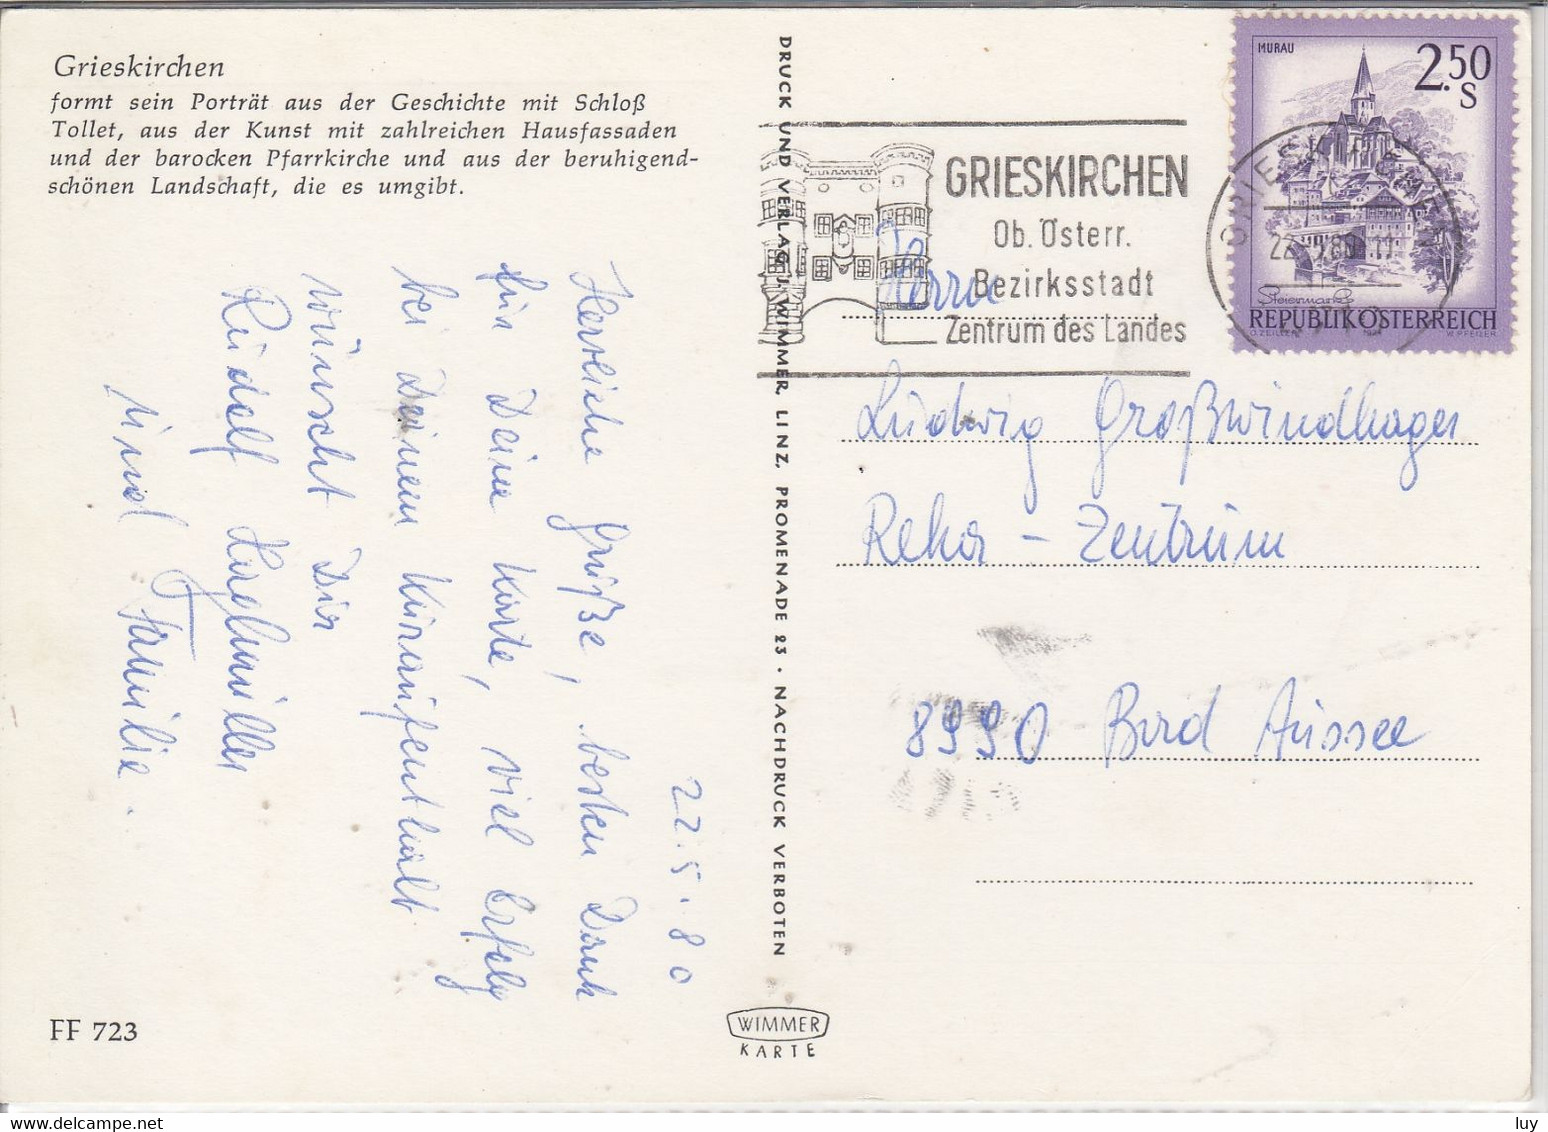 Grieskirchen
formt sein Porträt aus der Geschichte mit Schloß
Tollet, aus der Kunst mit zahlreichen Hausfassaden
und der barocken Pfarrkirche und aus der beruhigend-
schönen Landschaft, die es umgibt.
22.5.80
Herzliche Grüße, besten Dank
für Deine Karte, viel Erfolg
bei Deinem Kuraufenthalt
wünscht Dir
Rudolf
und Familie.
FF 723
DRUCK UND VERLAG J. WIMMER, LINZ, PROMENADE 23 · NACHDRUCK VERBOTEN
WIMMER
KARTE
GRIESKIRCHEN
Ob. Österr.
Bezirksstadt
Zentrum des Landes
MURAU
2.50
S
Steiermark
REPUBLIK ÖSTERREICH
Herrn
Ludwig Großwindhager
Reha - Zentrum
8990 Bad Aussee
luy